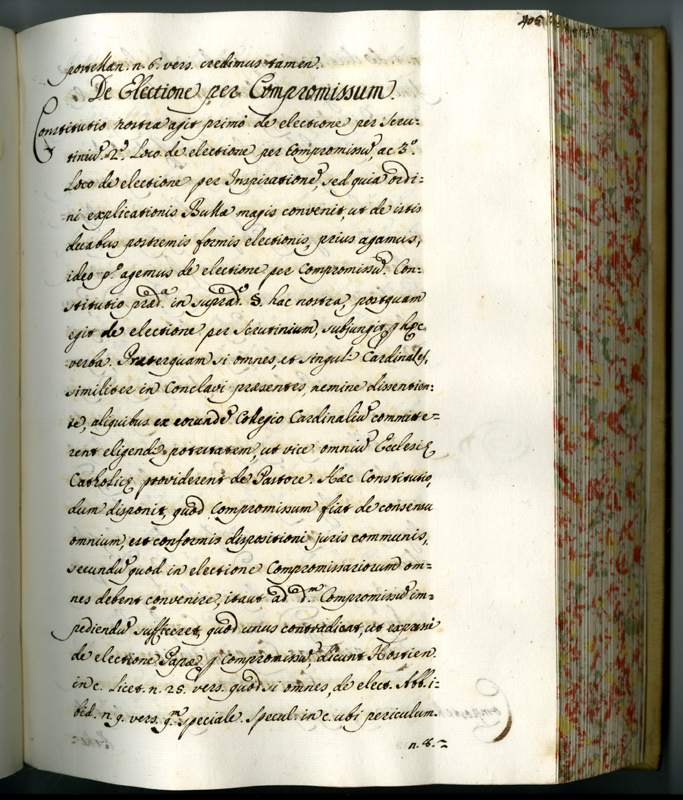 405
postellan. n. 6. vers. credimus tamen.
De Electione per Compromissum.
Constitutio nostra agit primò de electione per Scru-
tiniū. 2.º Loco de electione per Compromissū, ac 3.º
Loco de electione per Inspirationē, sed quia ordi-
ni explicationis Bullæ magis convenit, ut de istis
duabus postremis formis electionis, prius agamus,
ideo p.º agemus de electione per Compromissū. Con-
stitutio præd.ª in suprad.º §. hac nostra, postquam
egit de electione per Scrutinium, subjungit hęc
verba. Præterquam si omnes, et singuli Cardinales,
similiter in Conclavi præsentes, nemine dissentien-
te, aliquibus ex eorundē Collegio Cardinaliū committe-
rent eligendi potestatem, ut vice omniū Ecclesię
Catholicę providerent de Pastore. Hæc Constitutio,
dum disponit, quod Compromissum fiat de consensu
omnium, est conformis dispositioni juris communis,
secundū quod in electione Compromissariorum om-
nes debent convenire, itaut ad d.m Compromissū im-
pediendū sufficeret, quod unus contradicat, ut expresse
de electione Papæ p Compromissū, dicunt Hostien.
in c. licet. n. 25. vers. quod si omnes, de elect. Abb. i-
bid. n. 9. vers. q.m speciale. Specul. in c. ubi periculum.
n. 8.